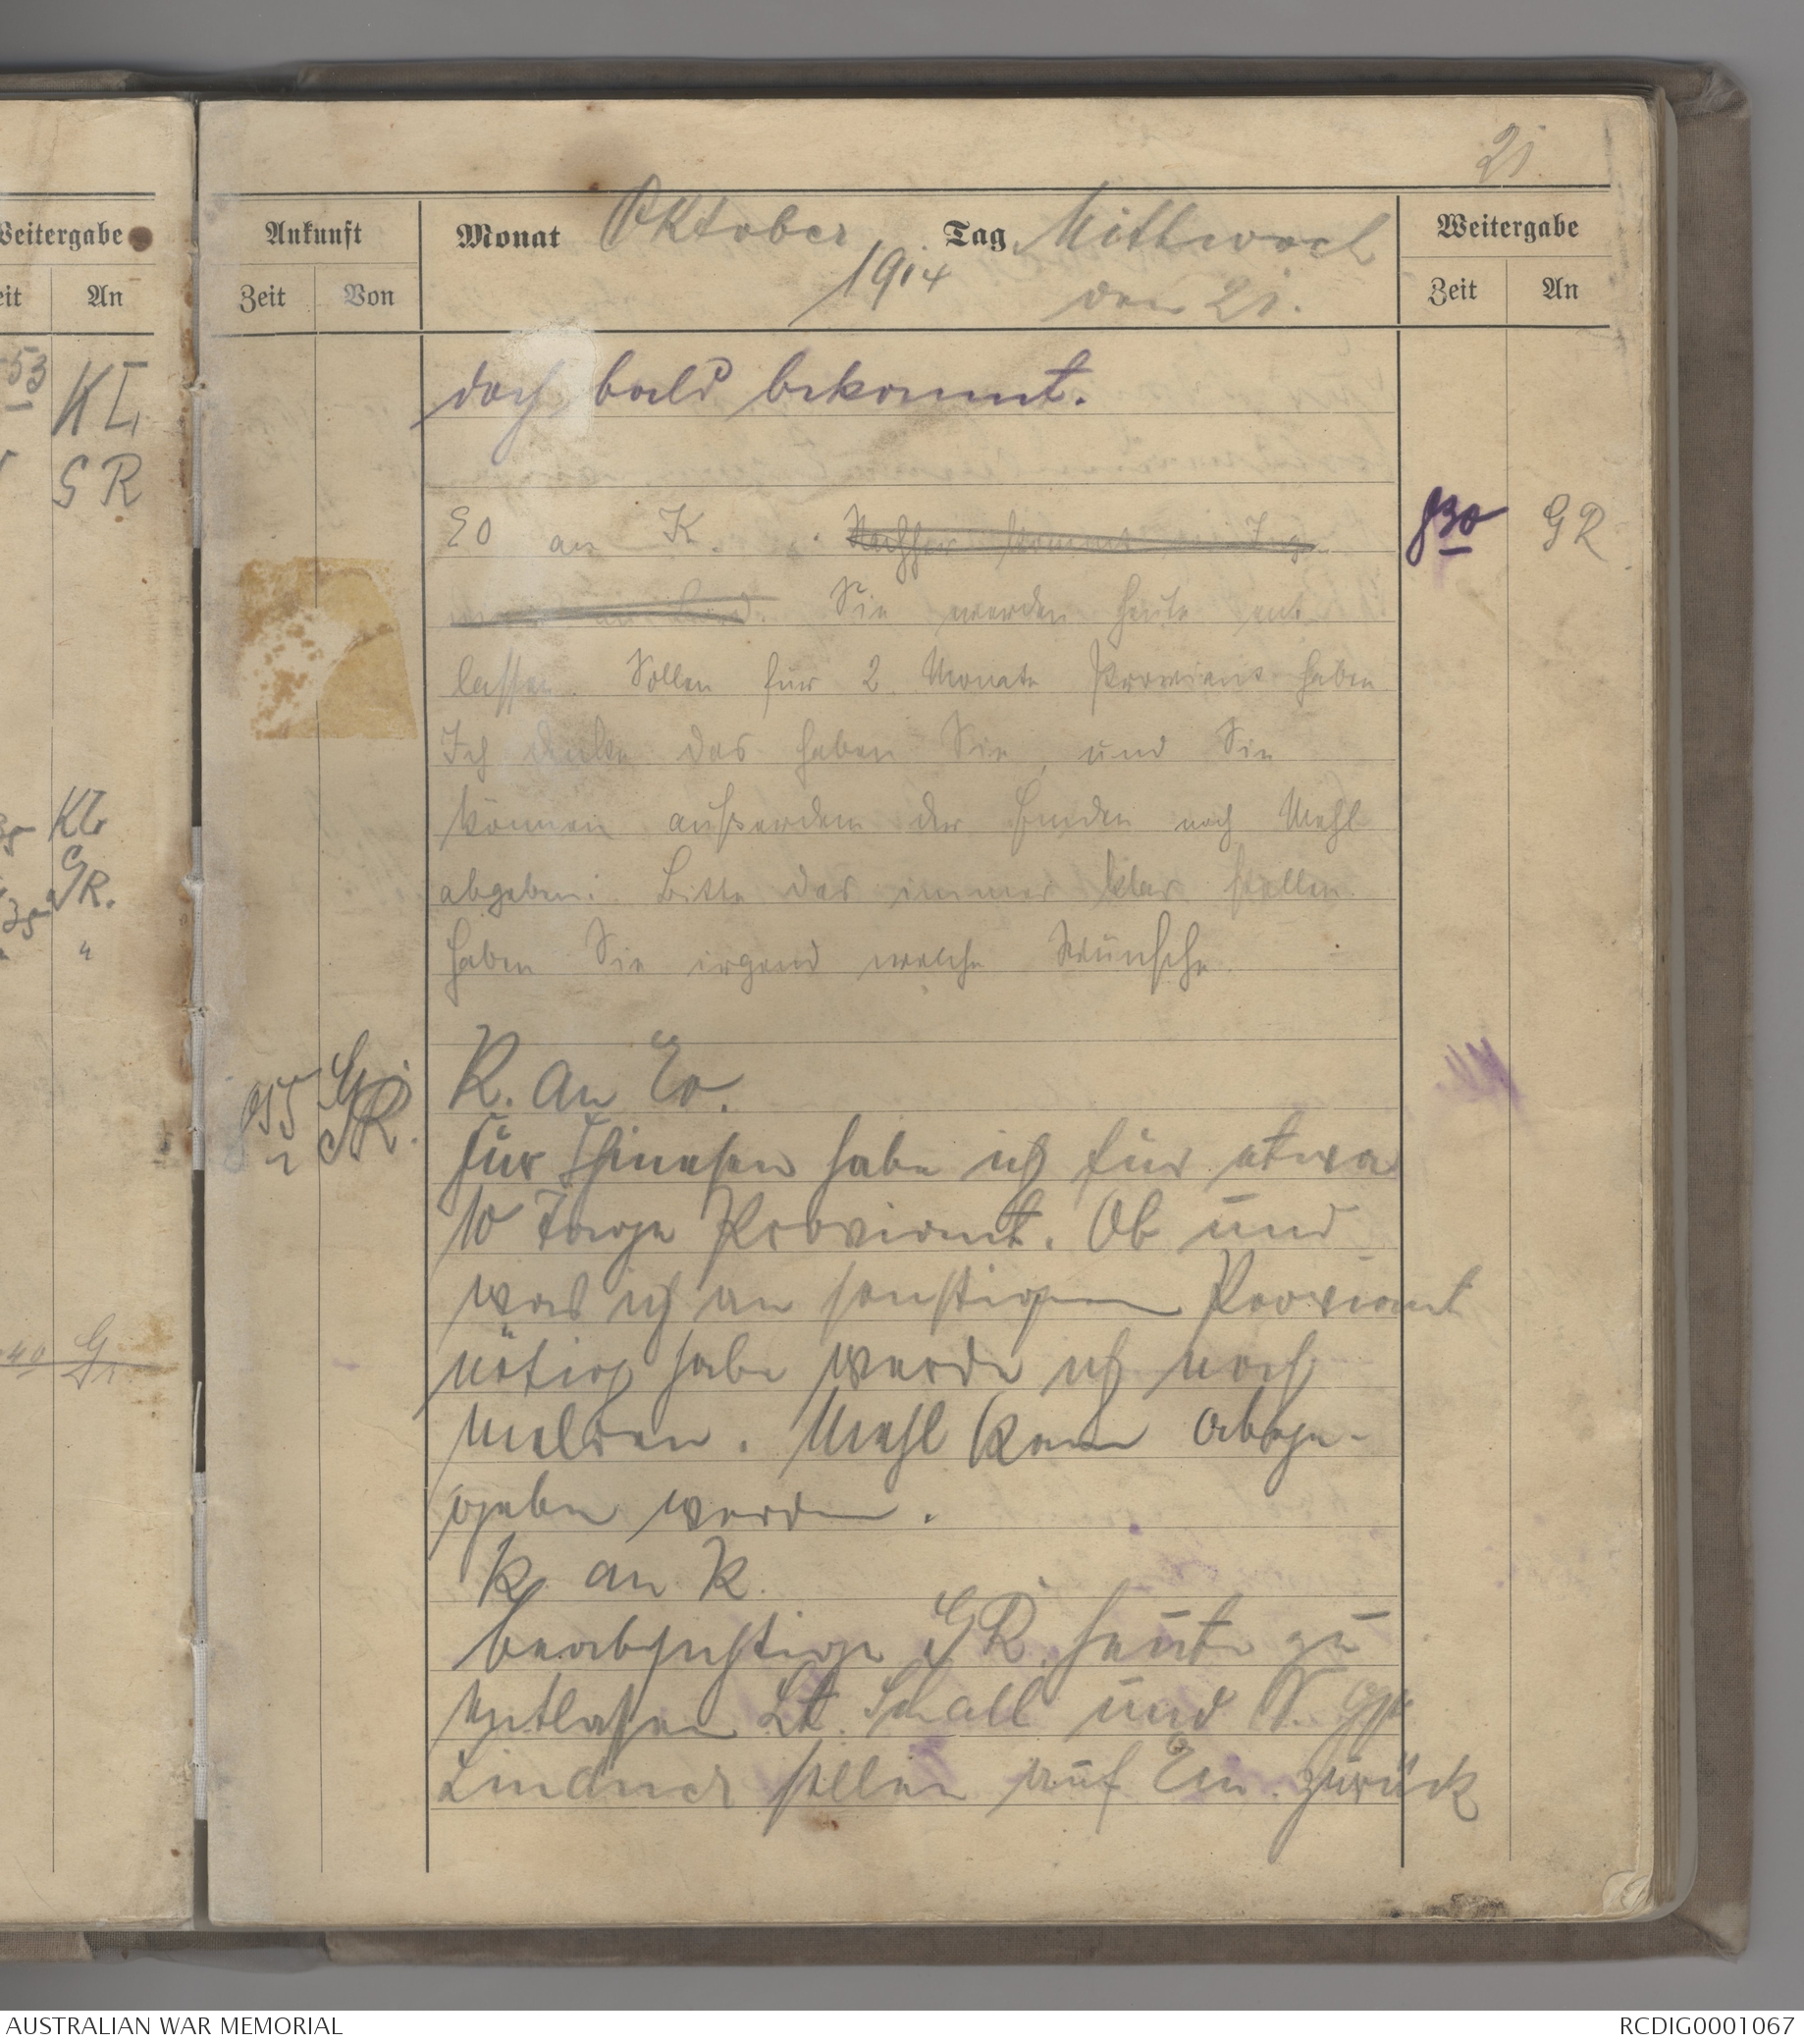 21.
Weitergabe
Zeit An
53 KL
GR
35 Kl
GR.
35
"
40 G.
Ankunft Monat Oktober 1914 Tag Mittwoch den 21. Weitergabe
Zeit Von Zeit An
doch bald bekommt.
EO an K. 8 30 GR
Sie werden heute ent
lassen. Sollen für 2 Monate Proviant haben
Ich denke das haben Sie, und Sie
können ausserdem der Emden noch Mehl
abgeben. Bitte das immer klar stellen.
Haben Sie irgend welche Wünsche.
855 GR. K. an Eo.
Für Chinesen habe ich für etwa
10 Tage Proviant. Ob und
was ich an sonstigem Proviant
nötig habe werde ich noch
melden. Mehl kann abge-
geben werden.
K. an K.
beabsichtige GR heute zu
entlassen Lt. Schall und
Lindner sollen auf Em. zurück
AUSTRALIAN WAR MEMORIAL RCDIG0001067